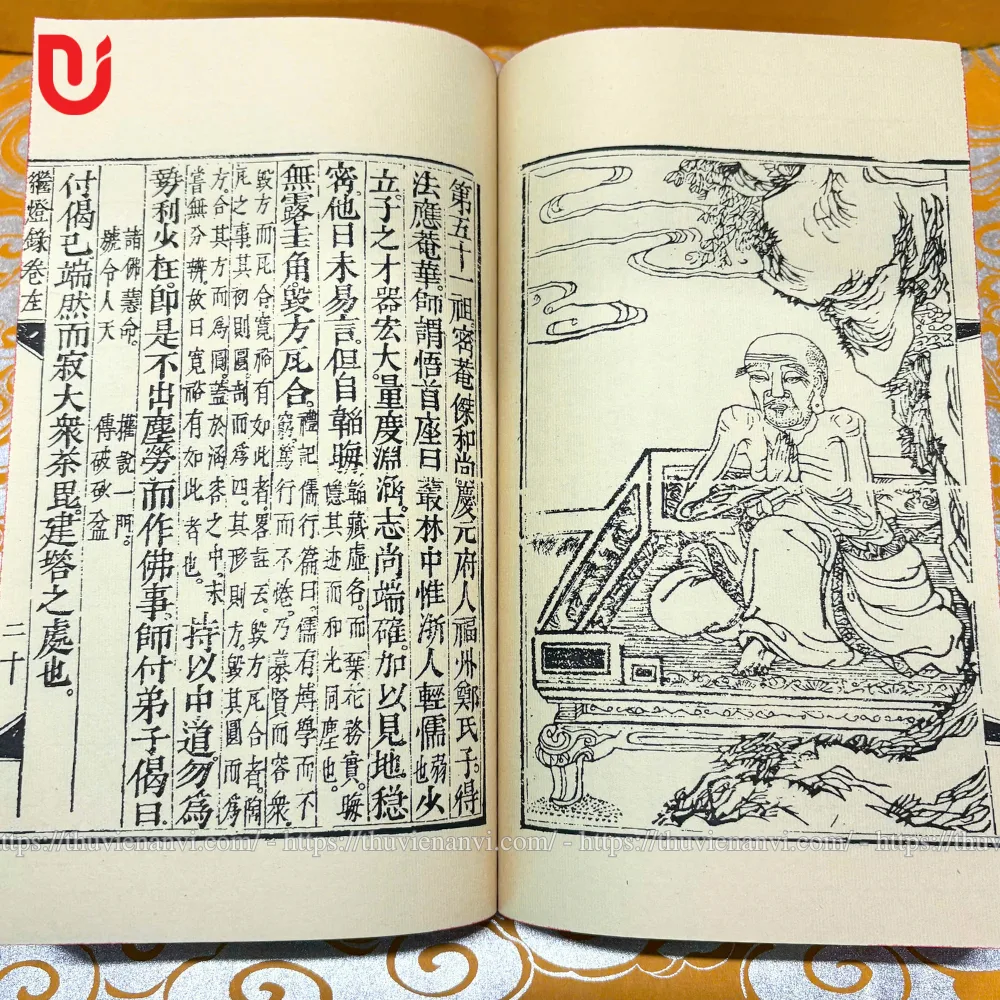 第五十一祖密菴傑和尚。慶元府人福州鄭氏子。得
法應菴華。師謂悟首座曰。叢林中惟浙人輕儒弱也少
立。子之才器宏大。量度淵涵。志尚端確。加以見地穩
密。他日未易言。但自韜晦
韜藏虛名。而葉花務實。晦
隱其迹而和光同塵也。
無露圭角。毀方瓦合。
禮記儒行篇曰。儒有博學而不
窮。篤行而不倦。乃慕賢而容衆
毀方而瓦合。寬裕有如此者。畧註云。毀方瓦合者。陶
瓦之事其初則圓。剖而爲四。其形則方。毀其圓而爲
方。合其方而爲圓。蓋於涵容之中。未
嘗無分辨。故曰寬裕有如此者也。
持以中道勿爲
勢利少枉。即是不出塵勞而作佛事。師付弟子偈曰
諸佛慧命。說一
號令人天 傳破砂盆
付偈已端然而寂大衆茶毘。建塔之處也。
繼燈錄卷左 二十
https://thuvienanvi.com/ - https://thuvienanvi.com/ - https://thuvienanvi.com/